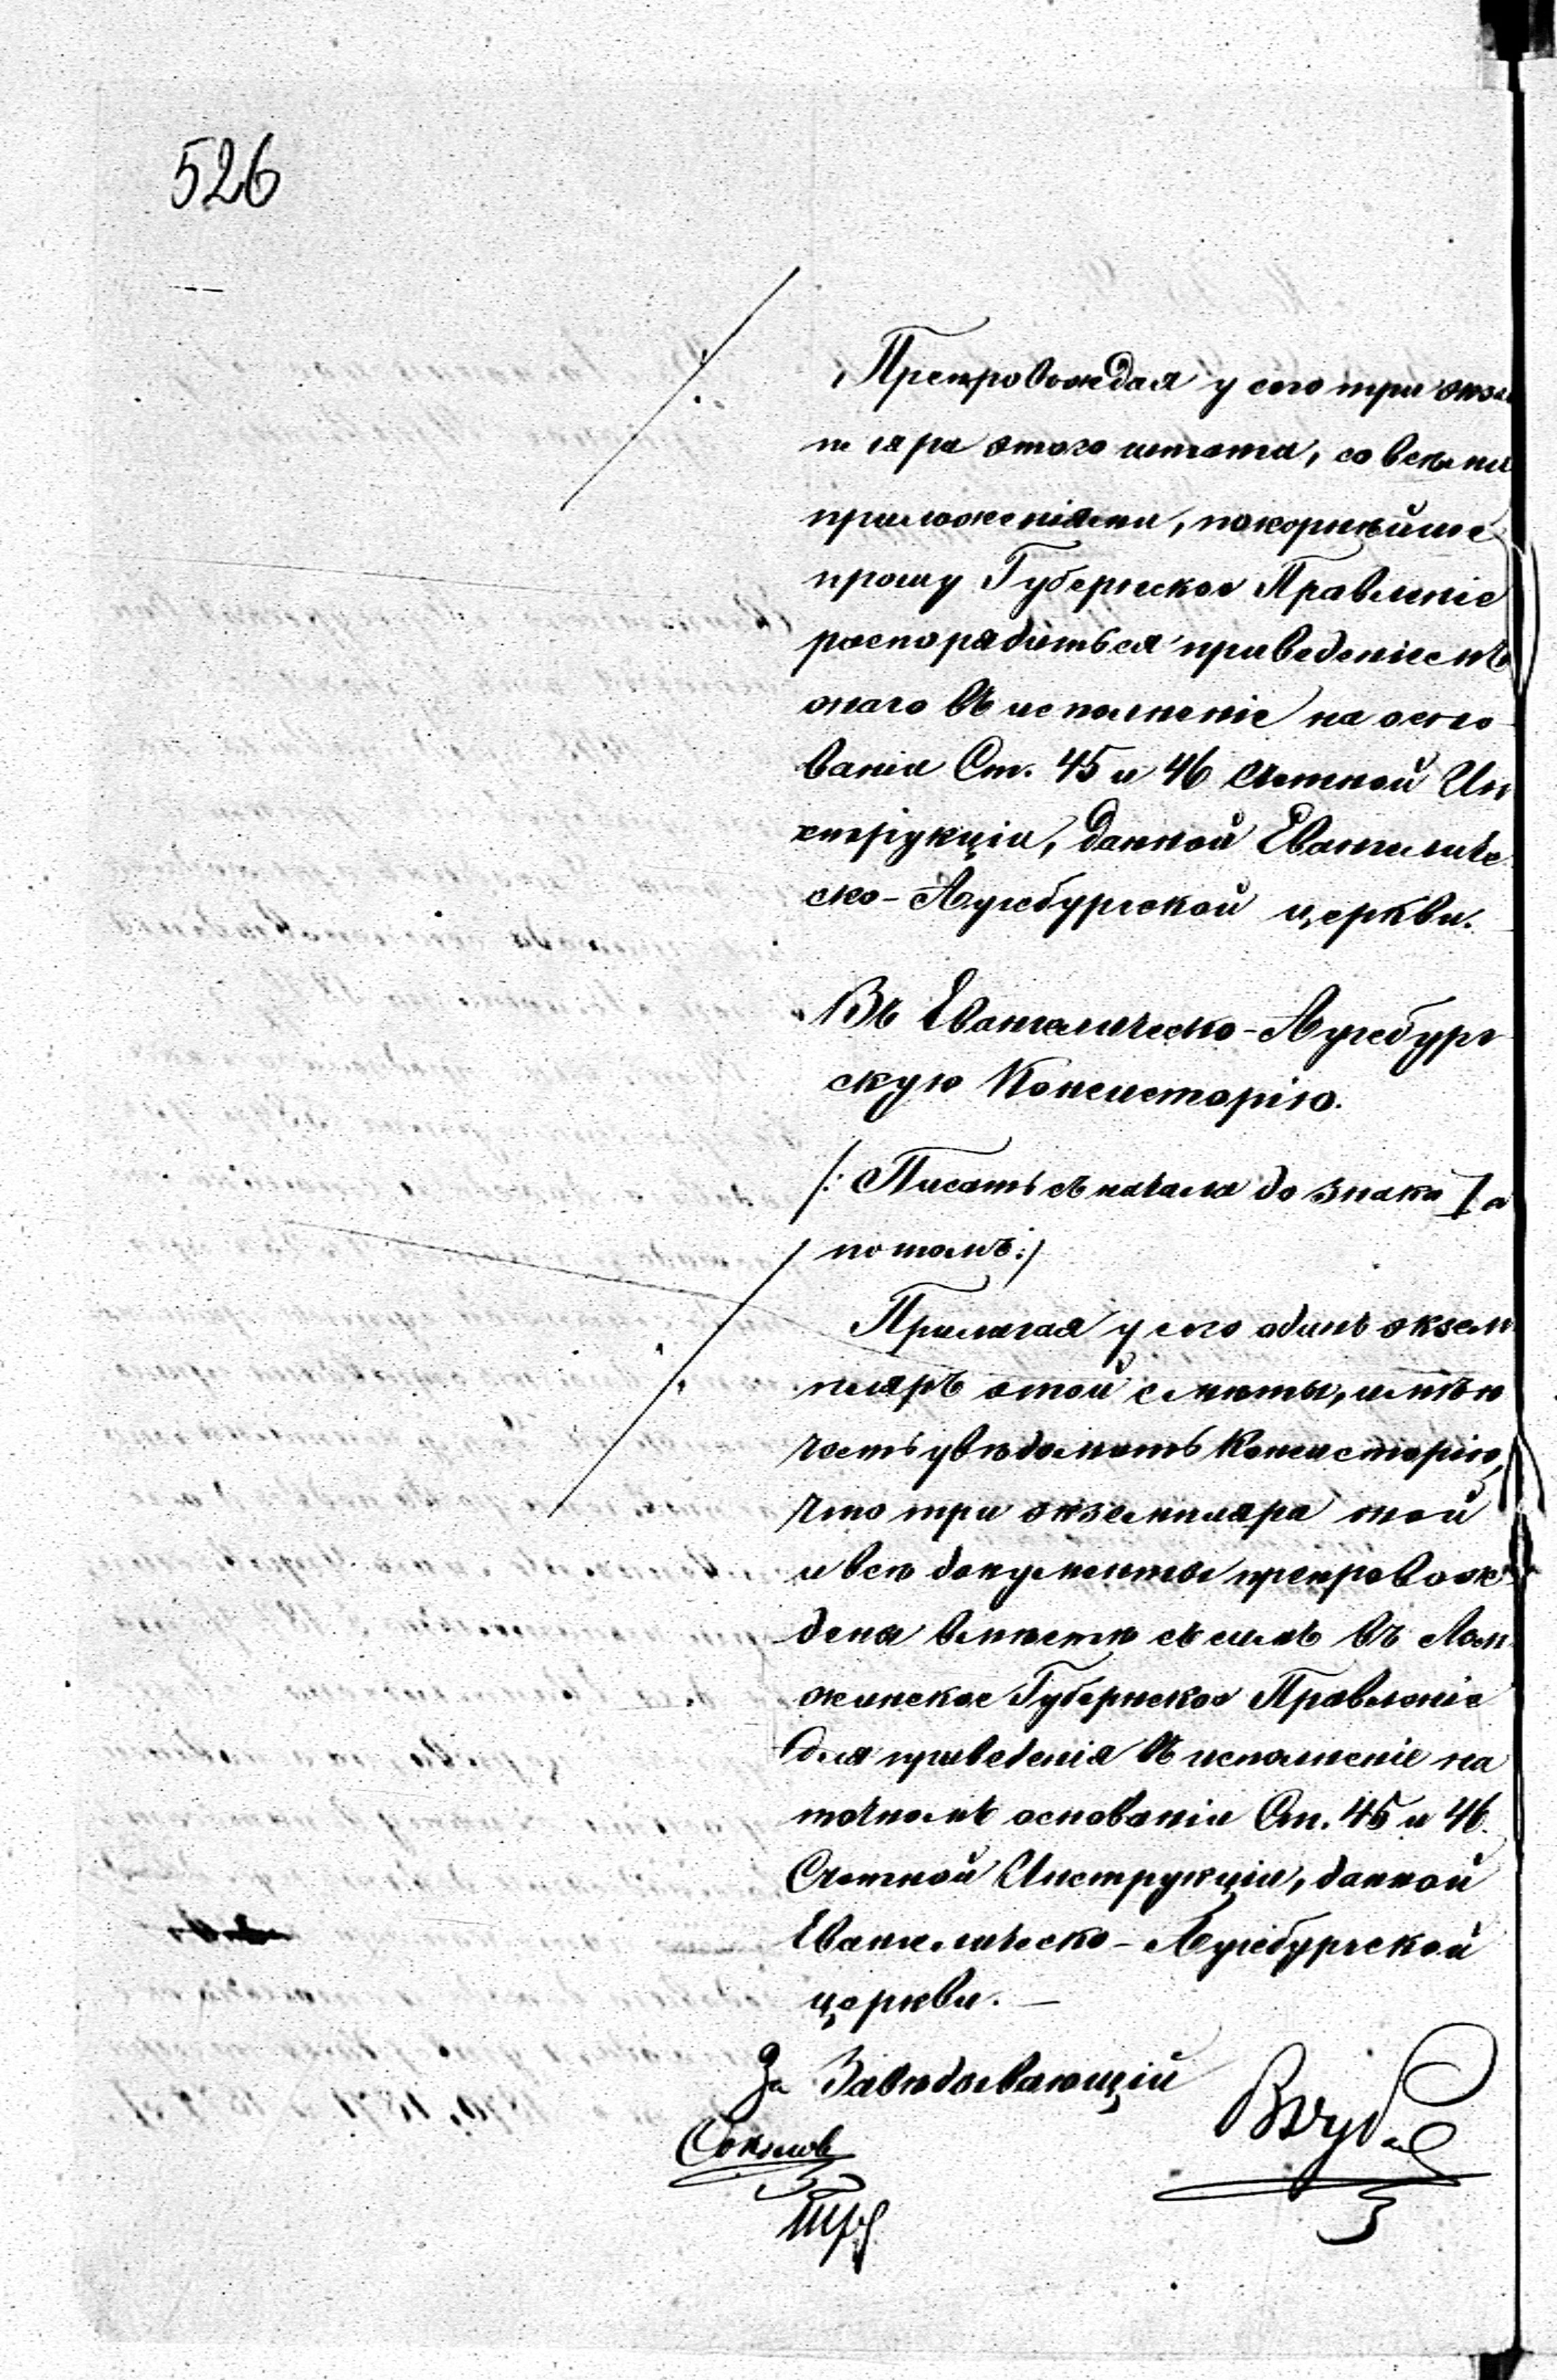 526
Препровождая у сего три экзем
пляра этого штата, со всѣми
приложеніями, покорнѣйше
прошу Губернское Правленіе
распорядиться приведеніемъ
онаго въ исполненіе на осно
ваніи Ст. 45 и 46 Счетной Ин
струкціи, данной Евангеличе
ско-Аугсбургской церкви.
Въ Евангелическо-Аугсбург
скую Консисторію.
/: Писать съ начала до знака ] а
потомъ:/
Прилагая у сего одинъ экзем
пляръ этой смѣты, имѣю
честь увѣдомить Консисторію,
что три экземпляра оной
и всѣ документы препровож
дены вмѣстѣ съ симъ въ Лом
жинское Губернское Правленіе
для приведенія въ исполненіе на
точномъ основаніи Ст. 45 и 46
Счетной Инструкціи, данной
Евангелическо-Аугсбургской
церкви. —
За Завѣдывающій